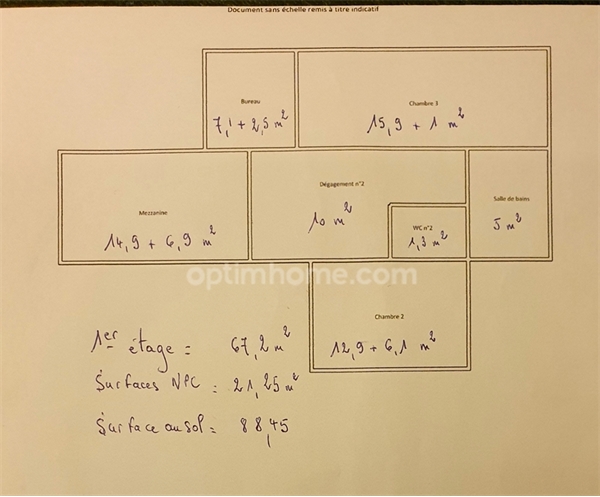 Document sans échelle remis à titre indicatif
Bureau
7,1 + 2,5 m²
Chambre 3
15,9 + 1 m²
Mezzanine
14,9 + 6,9 m²
Dégagement n°2
10 m²
WC n°2
1,3 m²
Salle de bains
5 m²
optimhome.com
Chambre 2
12,9 + 6,1 m²
1er étage = 67,2 m²
Surfaces NPC = 21,25 m²
Surface au sol = 88,45